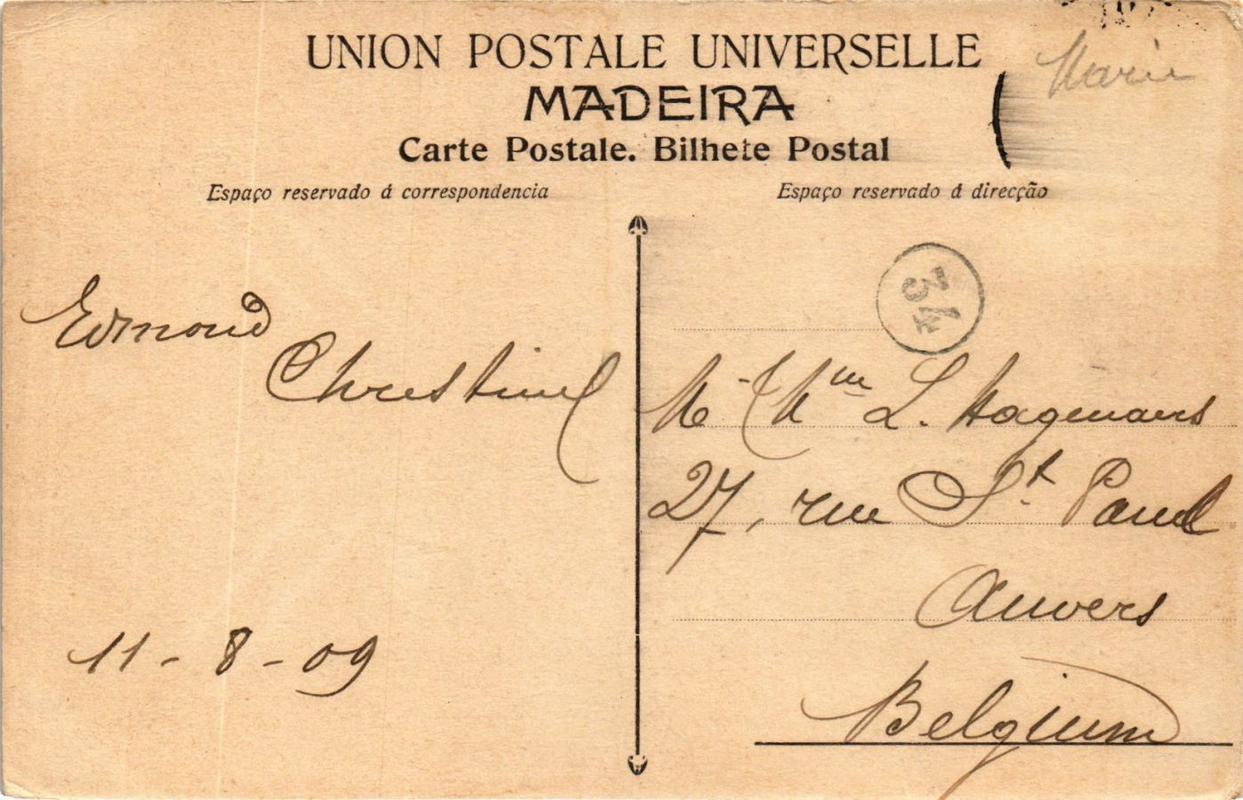 UNION POSTALE UNIVERSELLE
Marie
MADEIRA
Carte Postale. Bilhete Postal
Espaço reservado á correspondencia
Espaço reservado á direcção
34
Edmond
M. & Mme L. Hagenaers
27, rue St. Paul
Anvers
11-8-09
Belgium